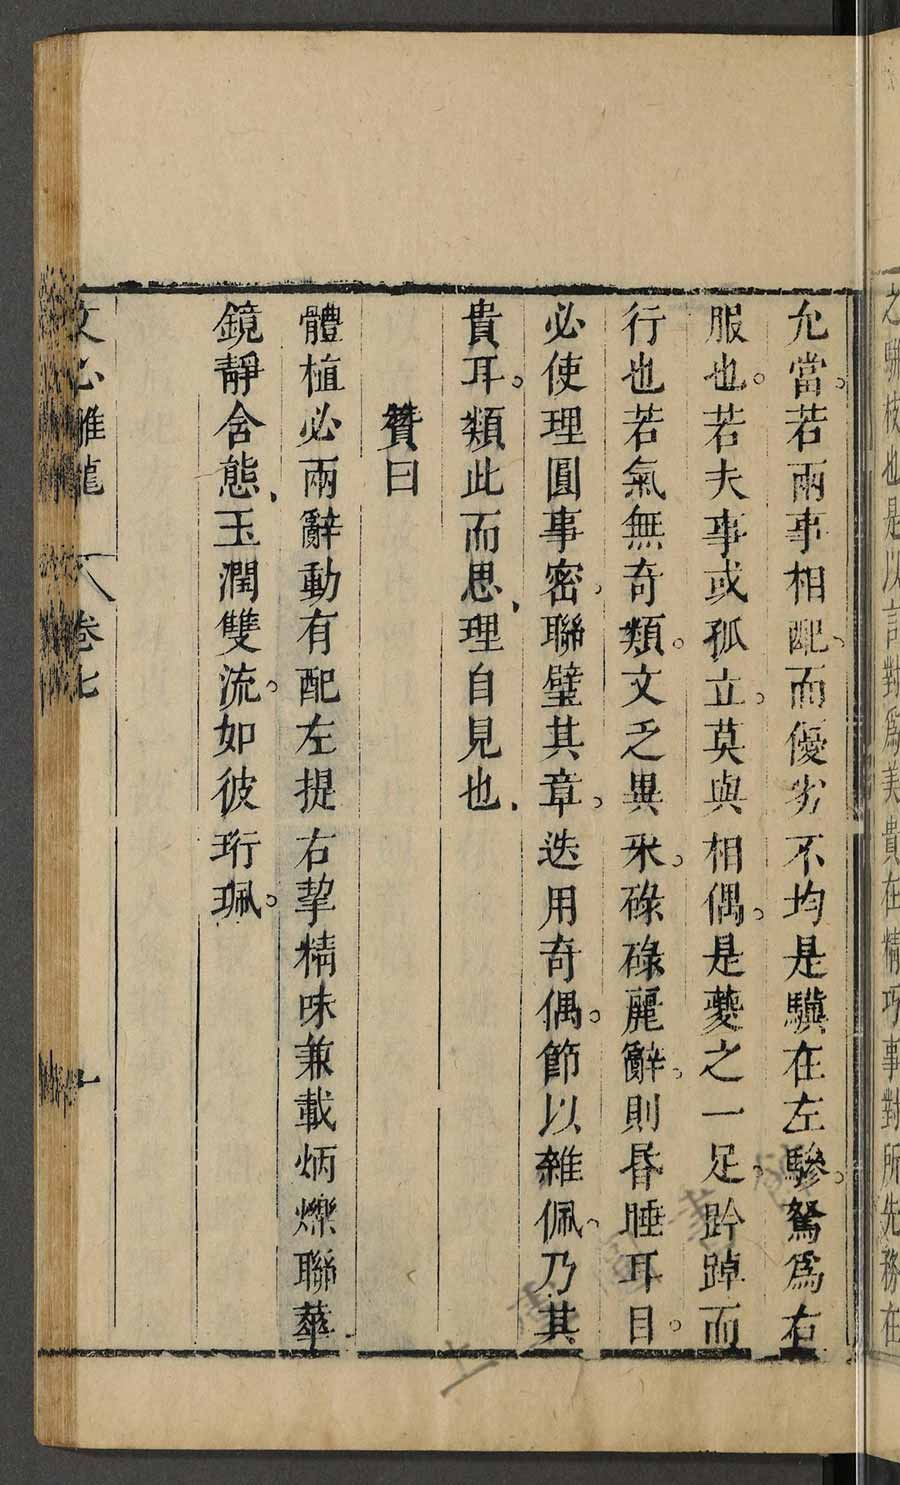 之駢枝也是以言對爲美貴在精巧事對所先務在
允當。若兩事相配。而優劣不均是驥在左驂。駑爲右
服也。若夫事或孤立。莫與相偶。是夔之一足。趻踔而
行也若氣無奇類。文乏異采。碌碌麗辭。則昏睡耳目。
必使理圓事密。聯璧其章。迭用奇偶。節以雜佩。乃其
貴耳。類此而思、理自見也、
贊曰
體植必兩辭動有配左提右挈精味兼載炳爍聯華
鏡靜含態、玉潤雙流。如彼珩珮。
文心雕龍 卷七 十